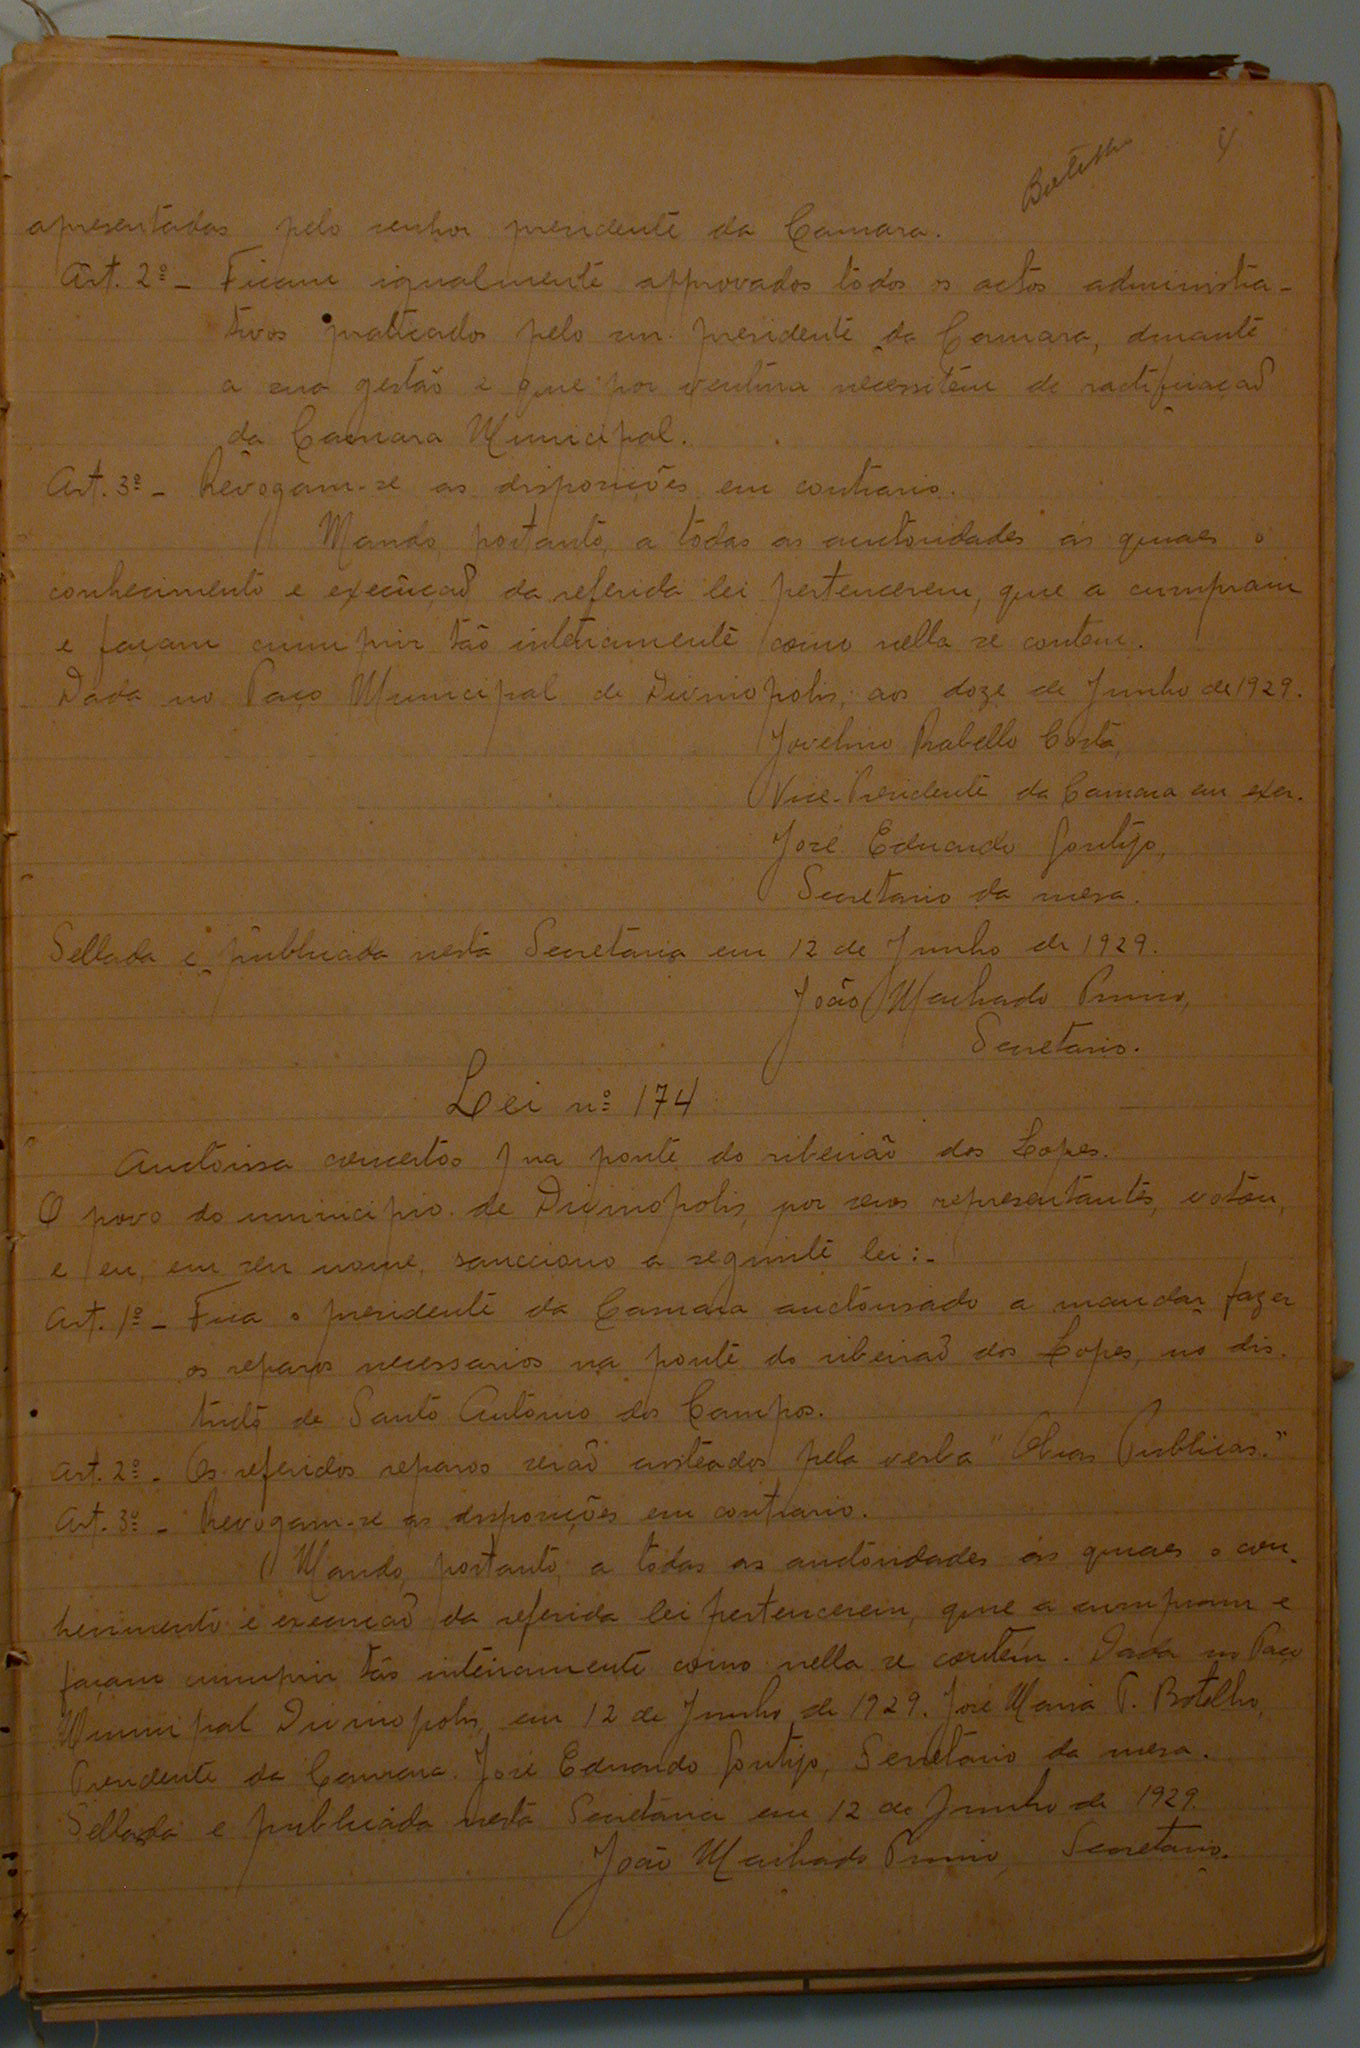 Botelho
4
apresentadas pelo senhor presidente da Camara.
Art. 2º - Ficam igualmente approvados todos os actos administra-
tivos praticados pelo snr. presidente da Camara, durante
a sua gestão e que por ventura necessitem de ractificação
da Camara Municipal.
Art. 3º - Revogam-se as disposições em contrario.
Mando, portanto, a todas as auctoridades ás quaes o
conhecimento e execução da referida lei pertencerem, que a cumpram
e façam cumprir tão inteiramente como nella se contem.
Dada no Paço Municipal de Divinopolis, aos doze de Junho de 1929.
Jovelino Rabello Costa,
Vice-Presidente da Camara em exer.
José Eduardo Gontijo,
Secretario da mesa.
Sellada e publicada nesta Secretaria em 12 de Junho de 1929.
João Machado Primo,
Secretario.
Lei nº 174
Auctorisa concertos na ponte do ribeirão dos Lopes.
O povo do municipio de Divinopolis, por seus representantes, votou,
e eu, em seu nome, sancciono a seguinte lei:-
Art. 1º - Fica o presidente da Camara auctorisado a mandar fazer
os reparos necessarios na ponte do ribeirão dos Lopes, no dis-
tricto de Santo Antonio dos Campos.
Art. 2º - Os referidos reparos serão custeados pela verba "Obras Publicas."
Art. 3º - Revogam-se as disposições em contrario.
Mando, portanto, a todas as auctoridades ás quaes o con-
hecimento e execução da referida lei pertencerem, que a cumpram e
façam cumprir tão inteiramente como nella se contém. Dada no Paço
Municipal Divinopolis, em 12 de Junho de 1929. José Maria P. Botelho,
Presidente da Camara. José Eduardo Gontijo, Secretario da mesa.
Sellada e publicada nesta Secretaria em 12 de Junho de 1929.
João Machado Primo, Secretario.